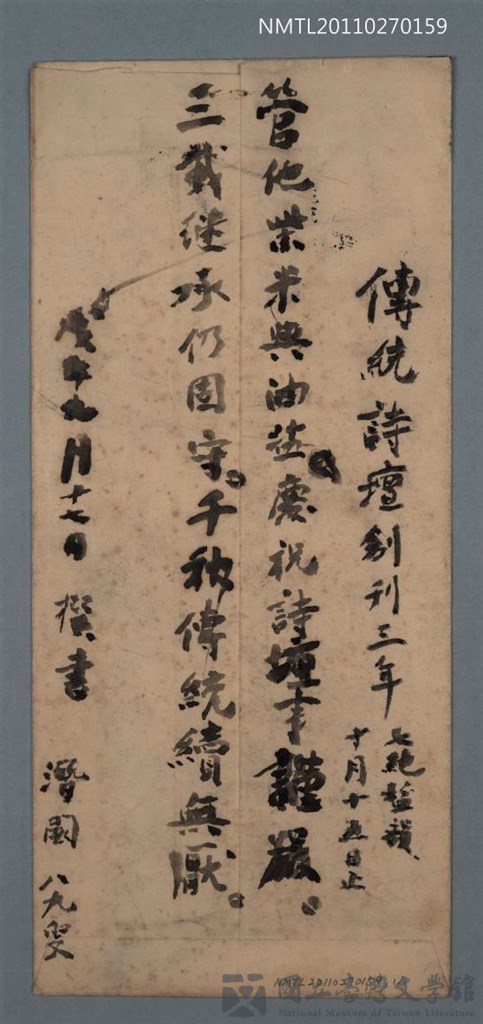 NMTL20110270159
傳統詩壇創刊三年
七絕塩韻、
十月十五日止
管他柴米與油塩。慶祝詩壇事謹嚴。
三載継承仍固守。千秋傳統續無厭。
年九月十七日 撰書
潛園 八九叟
NMTL20110270159
國立臺灣文學館
National Museum of Taiwan Literature